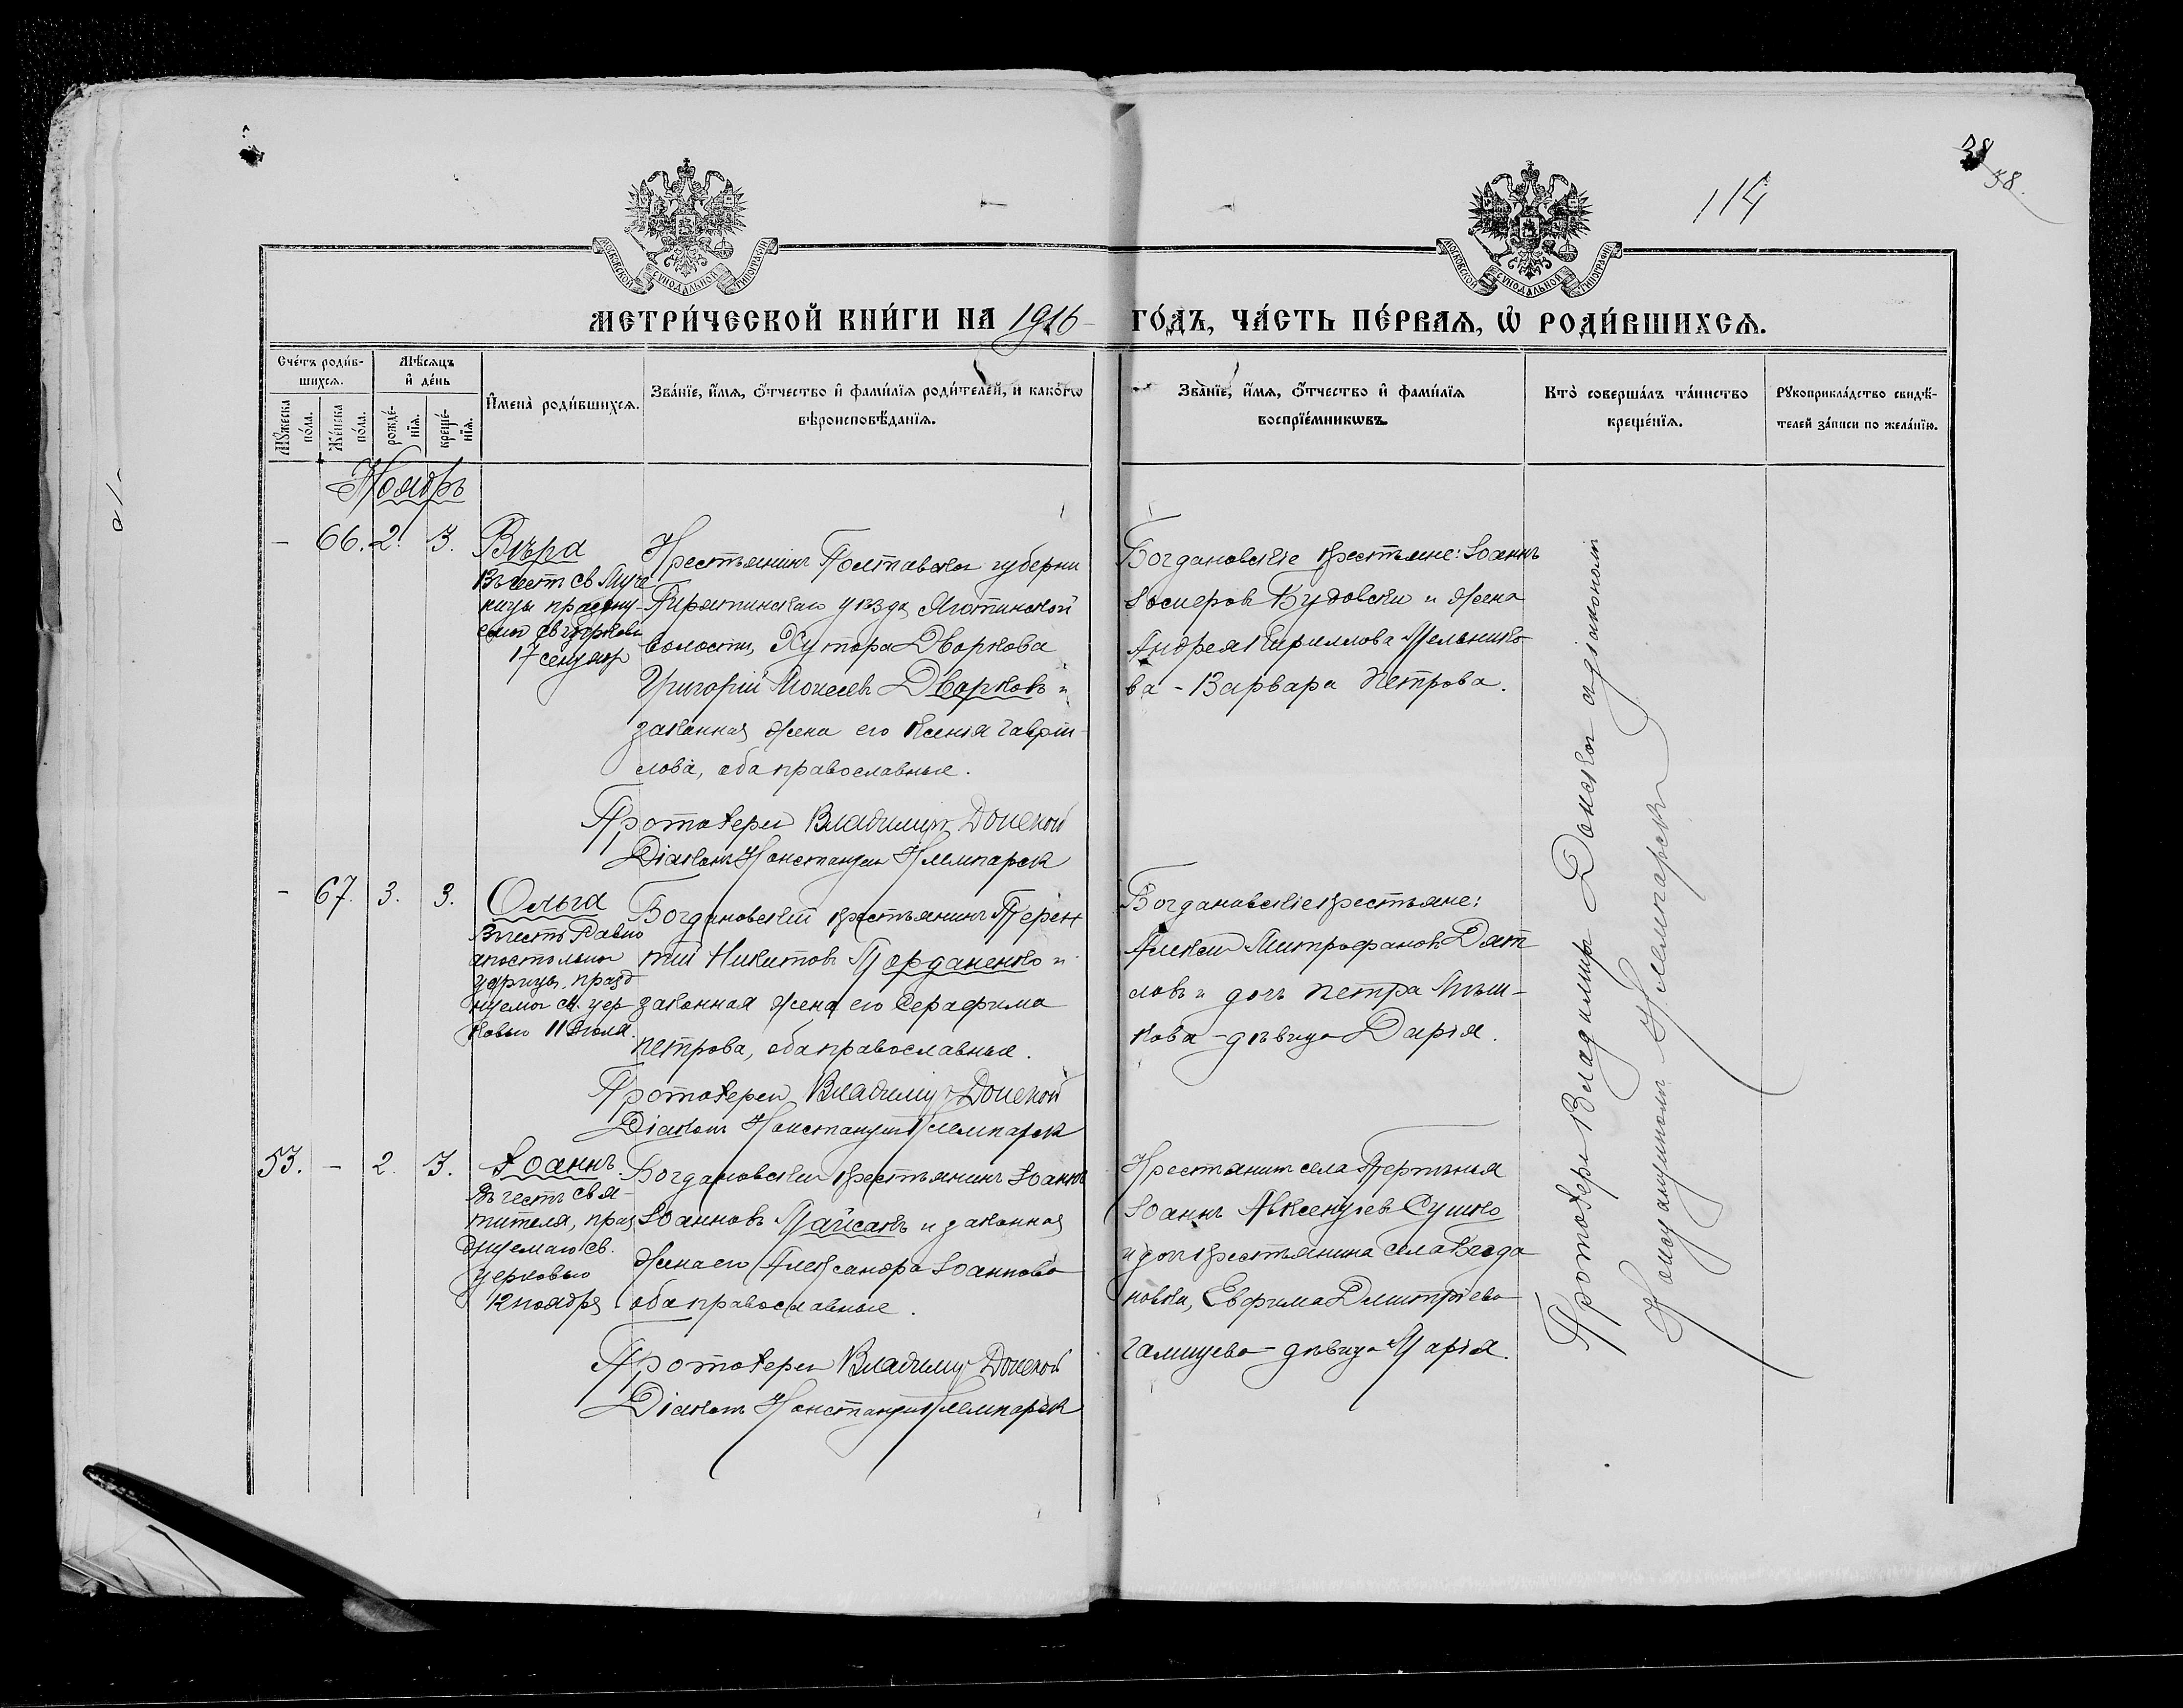 38
38.
114
МОСКОВСКОЙ СѴНОДАЛЬНОЙ ТИПОГРАФІИ
МОСКОВСКОЙ СѴНОДАЛЬНОЙ ТИПОГРАФІИ
МЕТРИ́ЧЕСКОЙ КНИ́ГИ НА 1916 ГО́ДЪ, ЧА́СТЬ ПЕ́РВАЯ, Ѡ҆ РОДИ́ВШИХСЯ.
Сче́тъ роди́в-
шихся.
Мꙋ́жеска по́ла.
Же́нска по́ла.
Мѣ́сяцъ и҆ де́нь
рожде́-
нїя.
креще́-
нїя.
И҆мена̀ роди́вшихся.
Зва́нїе, и҆́мя, ѻ҆́тчество и҆ фами́лїя роди́телей, и како́гѡ
вѣроисповѣ́данїя.
Зва́нїе, и҆́мя, ѻ҆́тчество и҆ фами́лїя
воспрїе́мникѡвъ.
Кто̀ соверша́лъ та́инство
креще́нїя.
Рꙋкоприкла́дство свидѣ́-
телей за́писи по жела́нїю.
Ноябрь
- 66. 2. 3.
Вѣра
Въ честь св Муче
ницы праздну-
емой св церковью
17 сентября
Крестьянинъ Полтавской губерніи
Пирятинскаго уѣзда, Яготинской
волости, Хутора Дворкова
Григорій Моисеевъ Дворковъ и
законная жена его Ксенія Гаврiи-
лова, оба православные.
Протоіерей Владимир Донской
Діаконъ Константин Клемпарск
Богдановскіе крестьяне: Іоаннъ
Іосифовъ Будовски и жена
Андрея Кириллова Мельнико-
ва - Варвара Петрова.
- 67. 3. 3.
Ольга
Въ честь Равно
апостольной
царицы, празд
нуемой св. цер
ковью 11 Іюля.
Богдановскій крестьянинъ Терен
тій Никитовъ Черданенко и
законная жена его Серафима
Петрова, оба православные.
Протоіерей Владимир Донской
Діаконъ Константин Клемпарск
Богдановскіе крестьяне:
Алексей Митрофановъ Дят
ловъ и дочь Петра Мѣш-
кова - дѣвица Дарія.
53. - 2. 3.
Іоаннъ.
Въ честь свя-
тителя, праз
днуемаго св.
церковью
12 ноября
Богдановскій крестьянинъ Іоаннъ
Іоанновъ Майсакъ и законная
жена его Александра Іоаннова
оба православные.
Протоіерей Владимир Донской
Діаконъ Константин Клемпарск
Крестьянинъ села
Іоаннъ Авксентіев Сушко
и дочь крестьянина села Богда
новки, Евфима Димитріева
Галицева - дѣвица Марія.
Протоіерей Владимиръ Донской с діакономъ
Константиномъ Клемпарскимъ